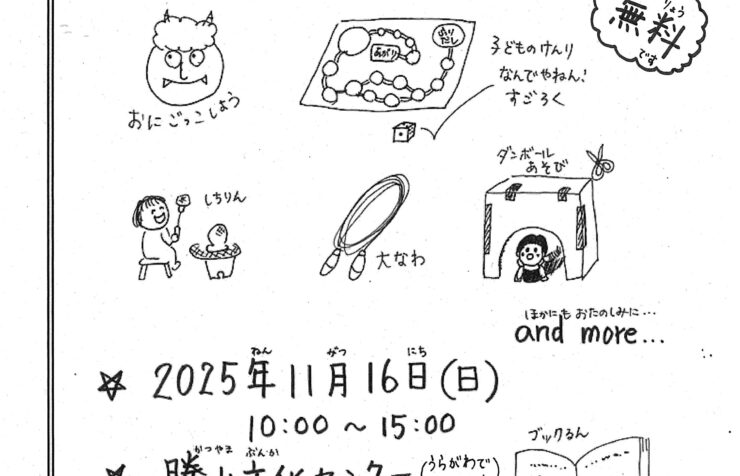 りょう
無料
です
ふりだし
あがり
子どものけんり
なんでやねん!
すごろく
おにごっこしよう
ダンボール
あそび
しちりん
大なわ
ほかにも おたのしみに…
and more...
ねん がつ にち
☆ 2025年11月16日(日)
10:00 〜 15:00
ブックるん
かつやま ぶんか
勝山文化センター(うらがわで